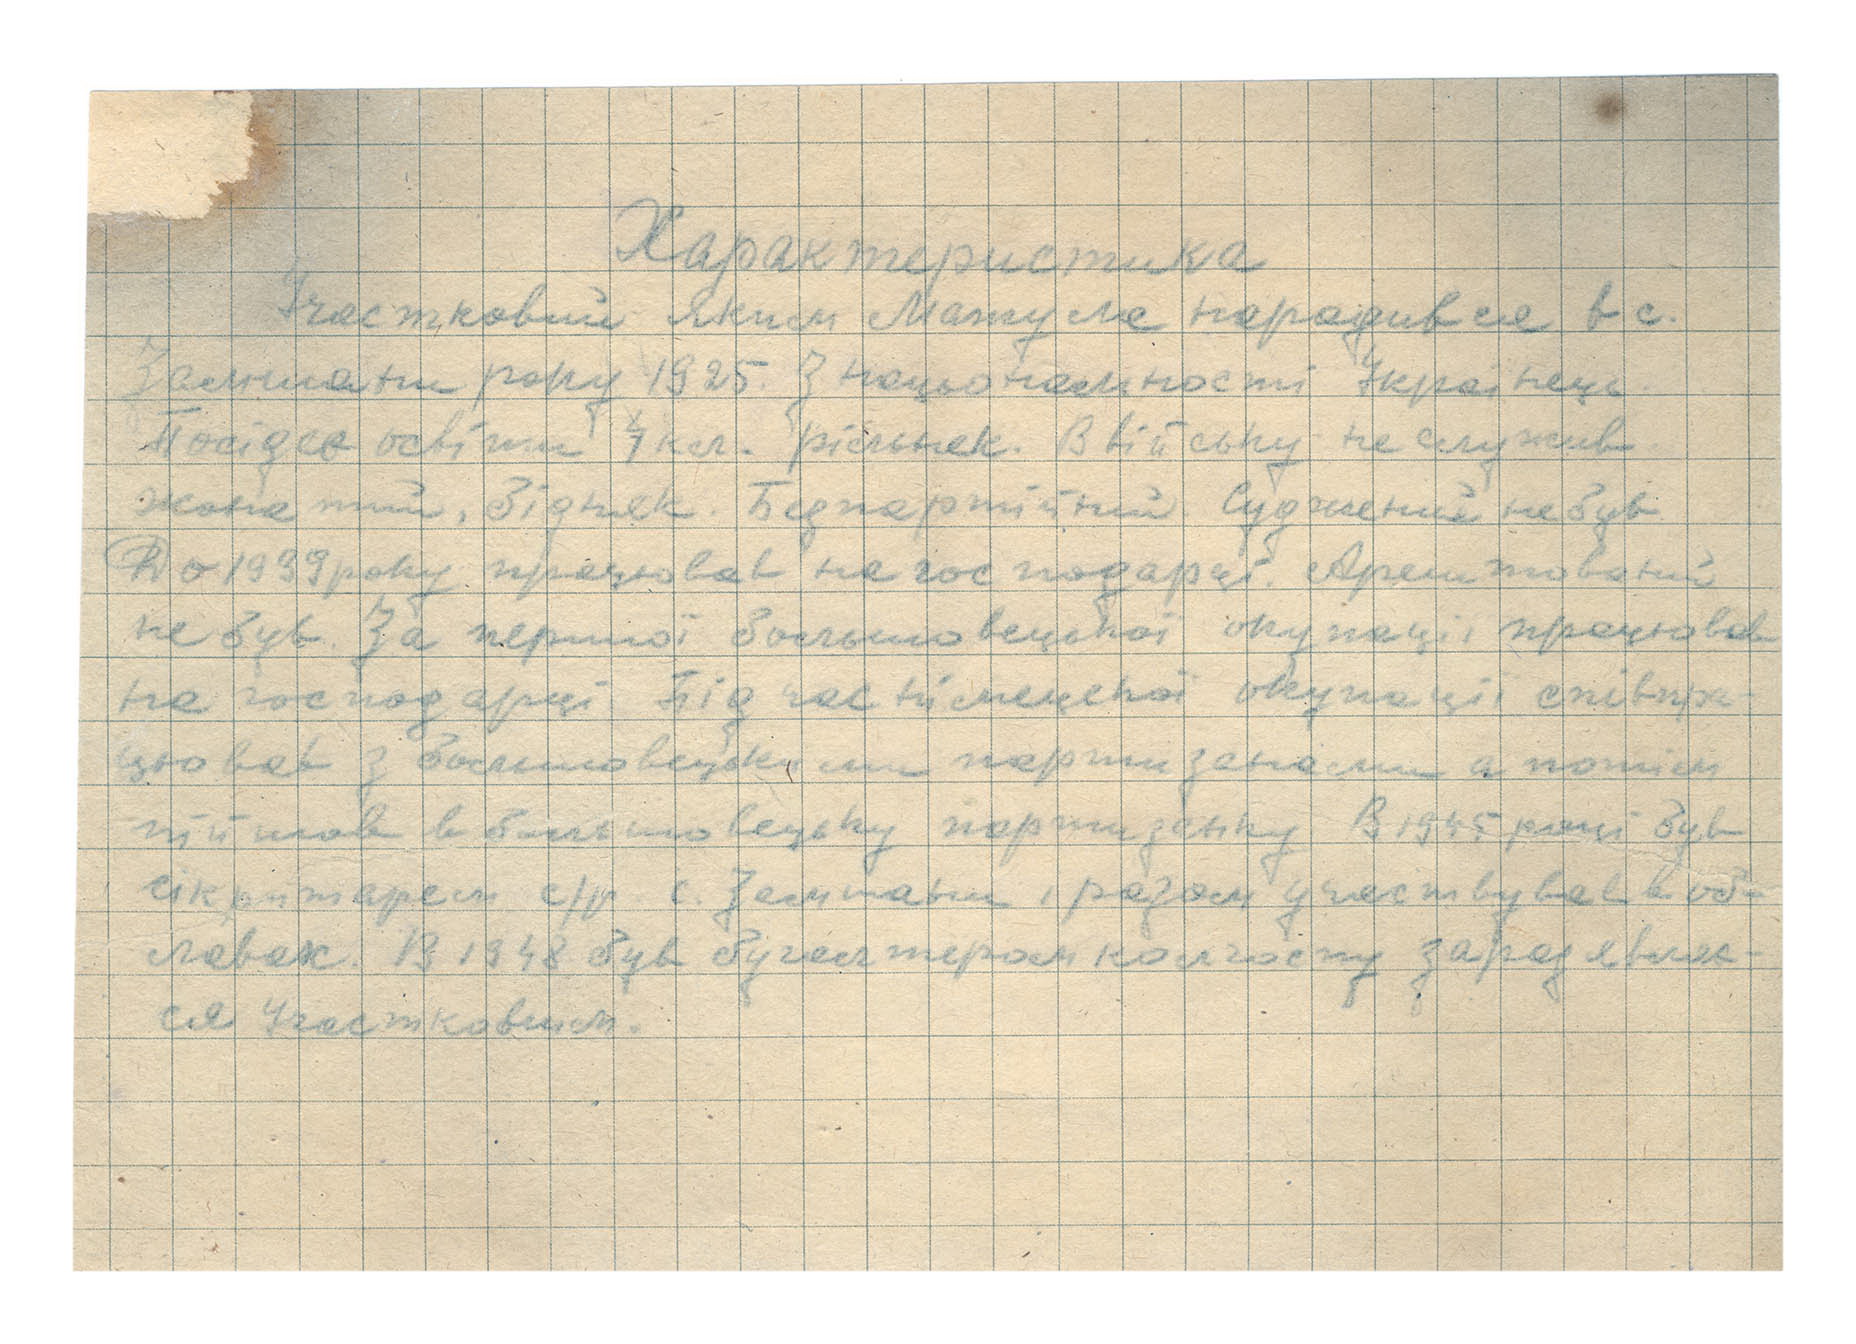 Характеристика
Участковий Яким Мажула народився в с.
Залишани року 1925. З націоналности Українець.
Посідає освіти 7 кл. рільник. В війську не служив
жонатий, бідняк. Безпартійний. Суджений не був
До 1939 року працював на господарці. Арештований
не був. За першої большовецької окупації працював
на господарці. Під час німецької окупації співпра-
цював з большовецькими партизанами а потім
пійшов в большовецьку партизанку В 1945 році був
сікритарем с/р с. Залишани, разом участвував в об-
лавах. В 1948 був бугалтером колгоспу зараз являє-
ся Участковим.